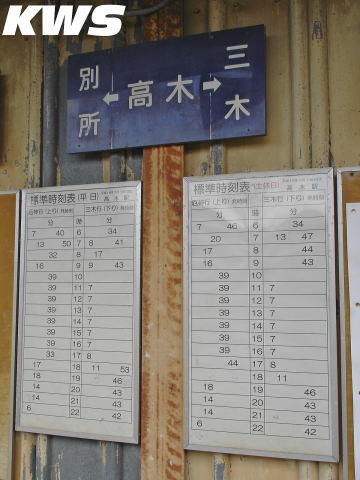 KWS
別所 ← 高木 → 三木
標準時刻表(平日) 高木駅
(上り) 発時刻 時 三木行(下り) 発時刻
分 分
7 40 6 34
13 50 7 8 41
32 8 17
16 9 9 43
39 10
39 11 7
39 12 7
39 13 7
39 14 7
39 15 7
39 16 7
33 17 8
17 18 11 53
18 19 46
14 20 43
14 21 43
6 22 42
標準時刻表(土休日) 高木駅
(上り) 発時刻 時 三木行(下り) 発時刻
分 分
7 46 6 34
20 7 13 47
17 8 44
16 9 43
39 10
39 11 7
39 12 7
39 13 7
39 14 7
39 15 7
39 16 7
44 17 8
18 18 11
18 19 46
14 20 43
14 21 43
6 22 42